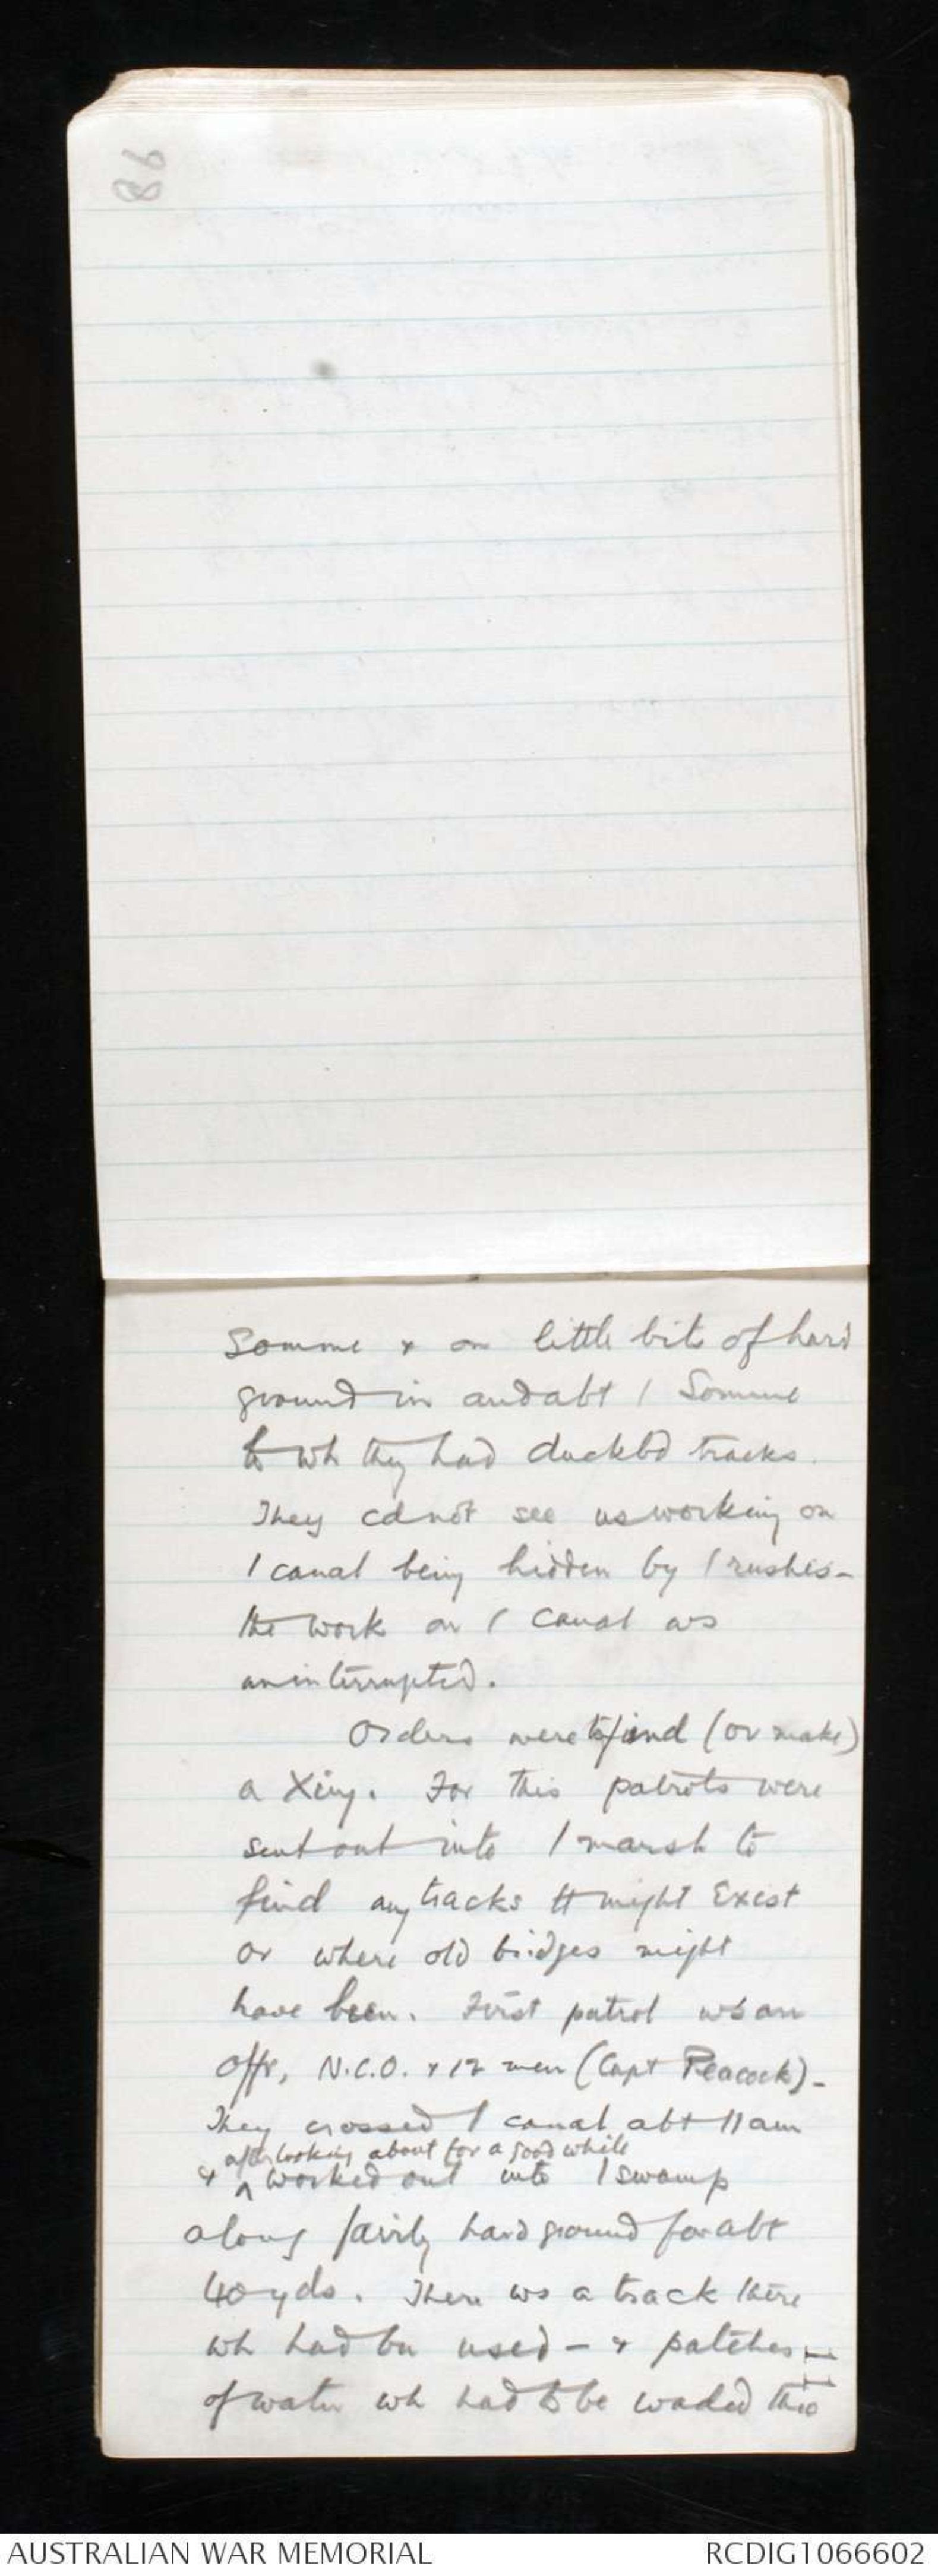 98
Somme & on little bits of hard
ground in and abt / Somme
to wh they had duckbd tracks.
They cd not see us working on
/ canal being hidden by / rushes -
the work on / canal ws
uninterrupted.
Orders were to find (or make)
a Xing. For this patrols were
sent out into / marsh to
find any tracks tt might exist
or where old bridges might
have been. First patrol ws an
Offr, N.C.O. & 12 men (Capt Peacock) -
They crossed / canal abt 11 am
after looking about for a good while
& ^ worked out into / swamp
along fairly hard ground for abt
40 yds. There ws a track there
wh had bn used - & patches
of water wh had to be waded thro
AUSTRALIAN WAR MEMORIAL
RCDIG1066602